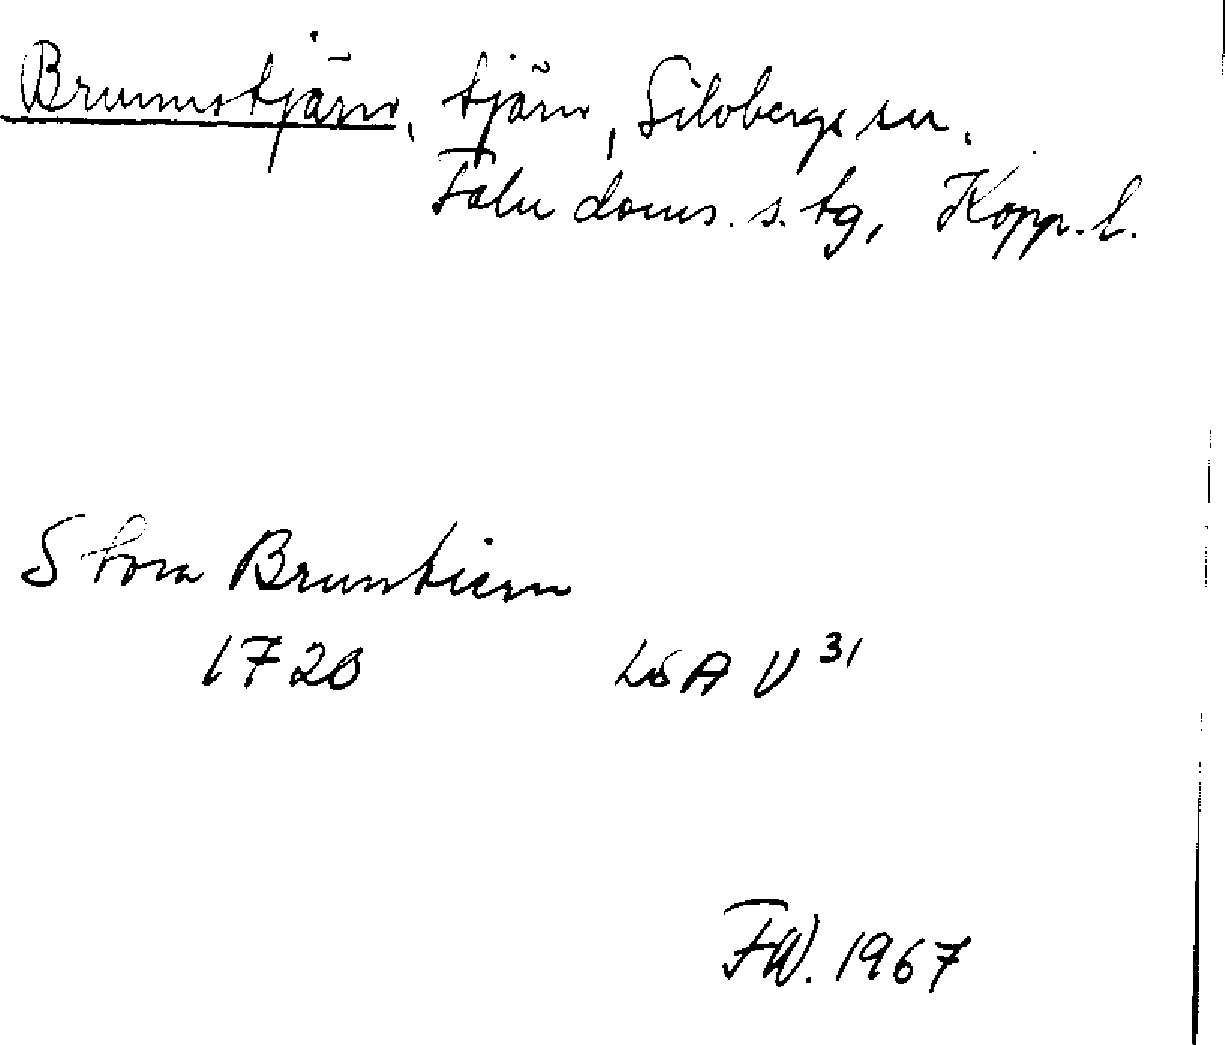 Brunnstjärn, tjärn, Silvbergs sn.
Falu doms. s. tg, Kopp. l.
Stora Brunstiern
1720 LSA V 31
FW. 1967